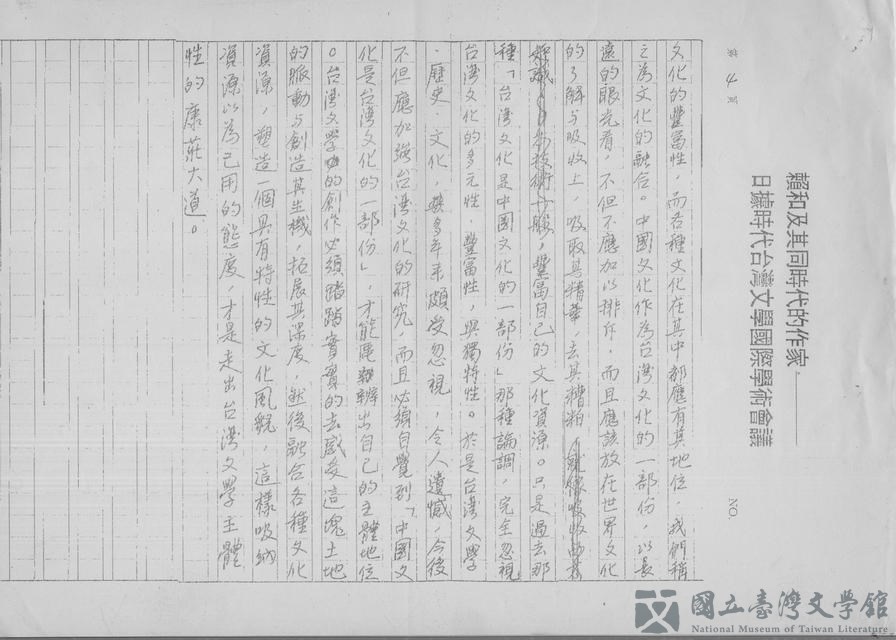 賴和及其同時代的作家
日據時代台灣文學國際學術會議
NO.
第 4 頁
文化的豐富性，而各種文化在其中都應有其地位，我們稱
之為文化的融合。中國文化作為台灣文化的一部份，以長
遠的眼光看，不但不應加以排斥，而且應該放在世界文化
的了解与吸收上，吸取其精華，去其糟粕
豐富自己的文化資源。只是過去那
種「台灣文化是中國文化的一部份」那種論調，完全忽視
台灣文化的多元性，豐富性，與獨特性。於是台灣文學
．歷史．文化，幾多年來頗受忽視，令人遺憾，今後
不但應加強台灣文化的研究，而且必須自覺到「中國文
化是台灣文化的一部份」，才能辨出自己的主體地位
。台灣文學的創作必須踏踏實實的去感受這塊土地
的脈動与創造其生機，拓展其深度，然後融合各種文化
資源，塑造一個具有特性的文化風貌，這樣吸納
資源以為己用的態度，才是走出台灣文學主體
性的康莊大道。
國立臺灣文學館
National Museum of Taiwan Literature